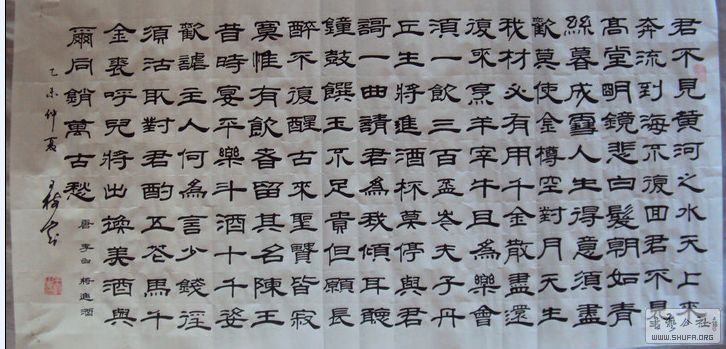 君不見黄河之水天上来
奔流到海不復回君不見
高堂明鏡悲白髮朝如青
絲暮成雪人生得意須盡
歡莫使金樽空對月天生
我材必有用千金散盡還
復来烹羊宰牛且為樂會
須一飲三百盃岑夫子丹
丘生將進酒杯莫停與君
謌一曲請君為我傾耳聽
鐘鼓饌玉不足貴但願長
醉不復醒古来聖賢皆寂
寞惟有飲者留其名陳王
昔時宴平樂斗酒十千恣
歡謔主人何為言少錢徑
須沽取對君酌五花馬千
金裘呼兒將出換美酒與
爾同銷萬古愁
唐李白將進酒
乙未仲夏
書藝公社
WWW.SHUFA.ORG